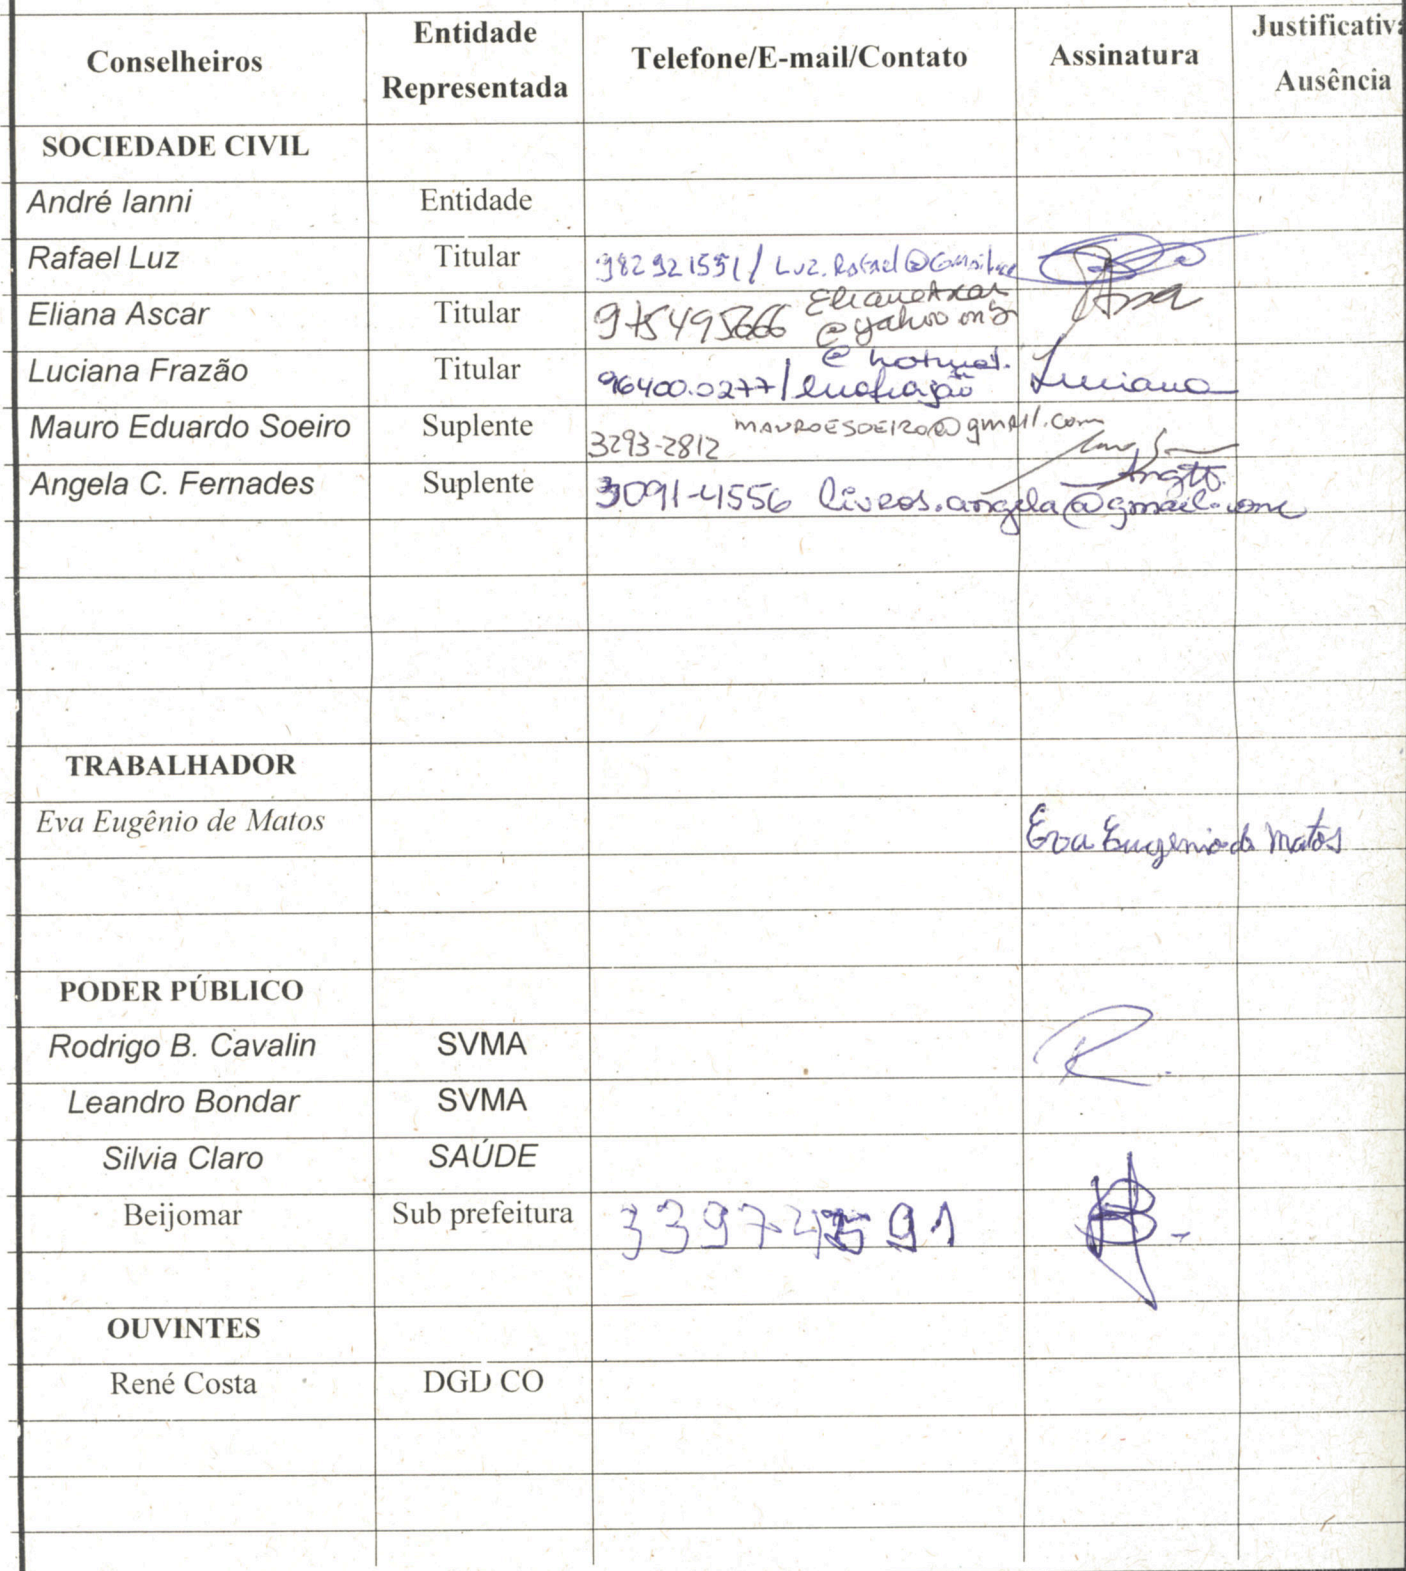 Conselheiros Entidade Representada Telefone/E-mail/Contato Assinatura Justificativa Ausência
SOCIEDADE CIVIL
André Ianni Entidade
Rafael Luz Titular 982921551 / Luz.Rafael@Gmail.com
Eliana Ascar Titular 975495666 @yahoo
Luciana Frazão Titular 96400.0277 / lucfrazão @hotmail. Luciana
Mauro Eduardo Soeiro Suplente 3293-2812 MAUROESOEIRO@gmAil.com
Angela C. Fernades Suplente 3091-4556 livros.angela@gmail.com
TRABALHADOR
Eva Eugênio de Matos Eva Eugenio de Matos
PODER PÚBLICO
Rodrigo B. Cavalin SVMA R.
Leandro Bondar SVMA
Silvia Claro SAÚDE
Beijomar Sub prefeitura
OUVINTES
René Costa DGD CO